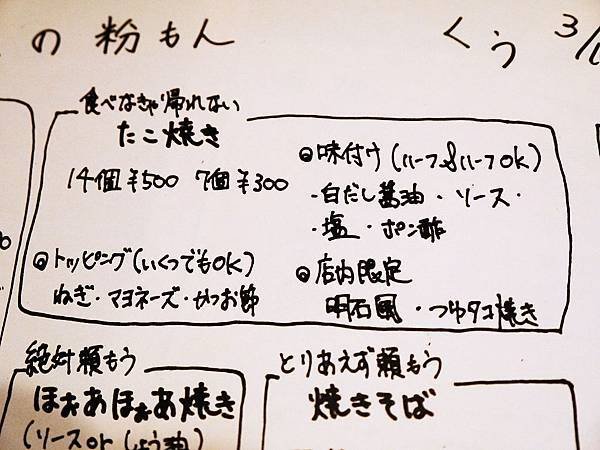 の粉もん
くう 3/
食べなきゃ帰れない
たこ焼き
14個¥500 7個¥300
◎味付け(ハーフ&ハーフOK)
・白だし醤油・ソース・
・塩・ポン酢
◎トッピング(いくつでもOK)
ねぎ・マヨネーズ・かつお節
◎店内限定
明石風・つゆタコ焼き
絶対頼もう
ほぉあほぉあ焼き
(ソースorしょう油)
とりあえず頼もう
焼きそば